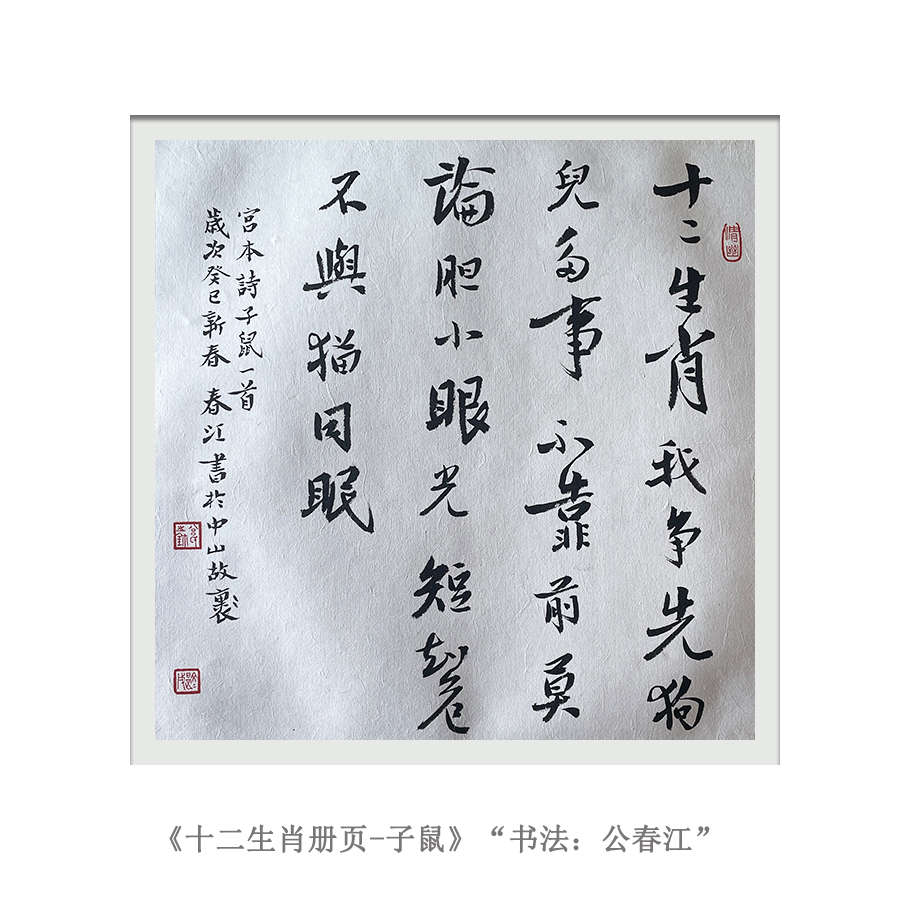 十二生肖我争先狗
兒多事不靠前莫
論胆小眼光短
不與猫同眠
宮本詩子鼠一首
歲次癸巳新春 春江書於中山故裏
清幽
《十二生肖册页-子鼠》“书法：公春江”